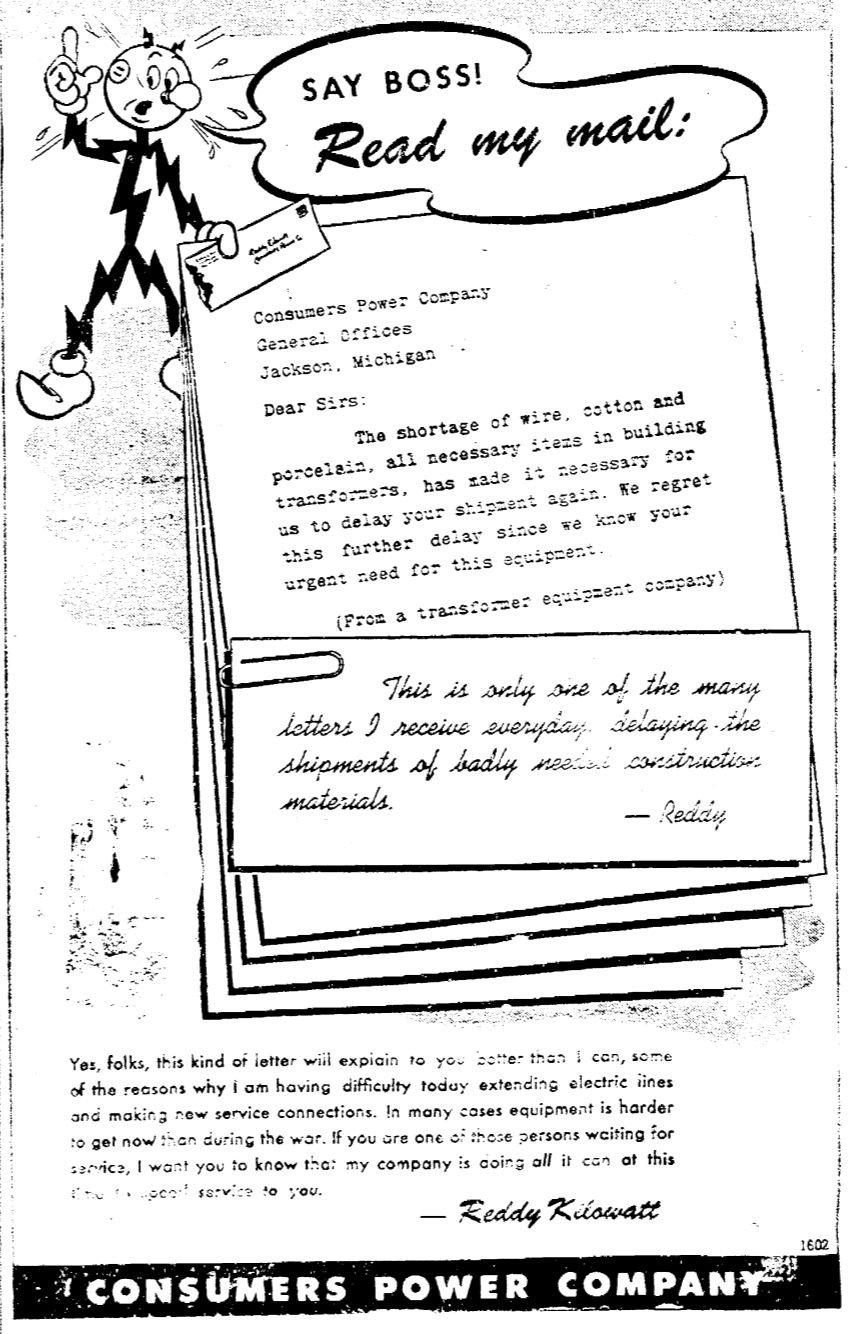 SAY BOSS!
Read my mail:
Reddy Kilowatt
Consumers Power Co.
Consumers Power Company
General Offices
Jackson, Michigan
Dear Sirs:
The shortage of wire, cotton and
porcelain, all necessary items in building
transformers, has made it necessary for
us to delay your shipment again. We regret
this further delay since we know your
urgent need for this equipment.
(From a transformer equipment company)
This is only one of the many
letters I receive everyday, delaying the
shipments of badly needed construction
materials.
— Reddy
Yes, folks, this kind of letter will explain to you better than I can, some
of the reasons why I am having difficulty today extending electric lines
and making new service connections. In many cases equipment is harder
to get now than during the war. If you are one of those persons waiting for
service, I want you to know that my company is doing all it can at this
time to speed service to you.
— Reddy Kilowatt
1602
CONSUMERS POWER COMPANY